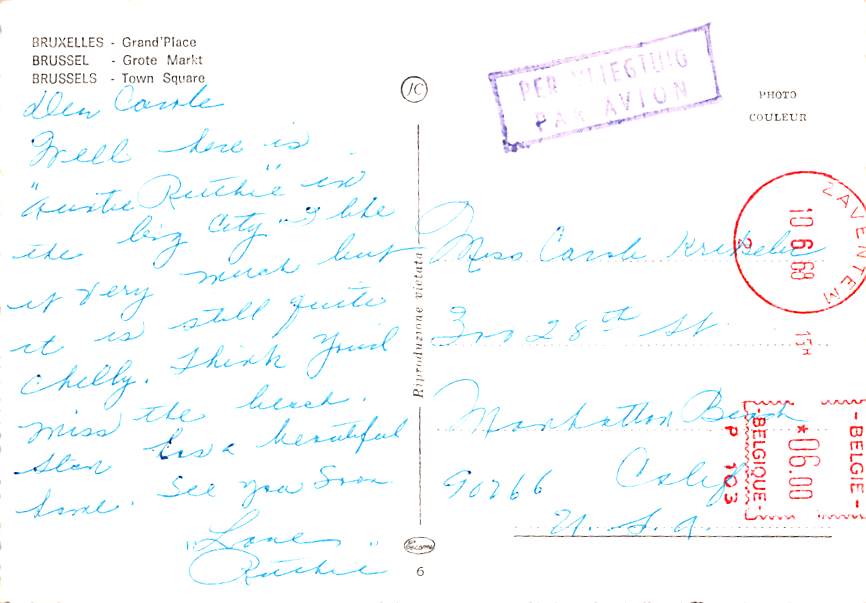 BRUXELLES - Grand'Place
BRUSSEL - Grote Markt
BRUSSELS - Town Square
Dear Carole
Well here is
"Auntie Ruthie" in
the big City - I like
it very much but
it is still quite
chilly. Think you'd
miss the beach.
Stan has a beautiful
home. See you soon
"Love"
Ruthie
JC
Reproduzione vietata
6
PER VLIEGTUIG
PAR AVION
PHOTO
COULEUR
ZAVENTEM
2
10 6 68
15H
Miss Carole
28th St
Manhattan Beach
90266 Calif
U.S.A.
BELGIE - BELGIQUE
*06.00
P 103